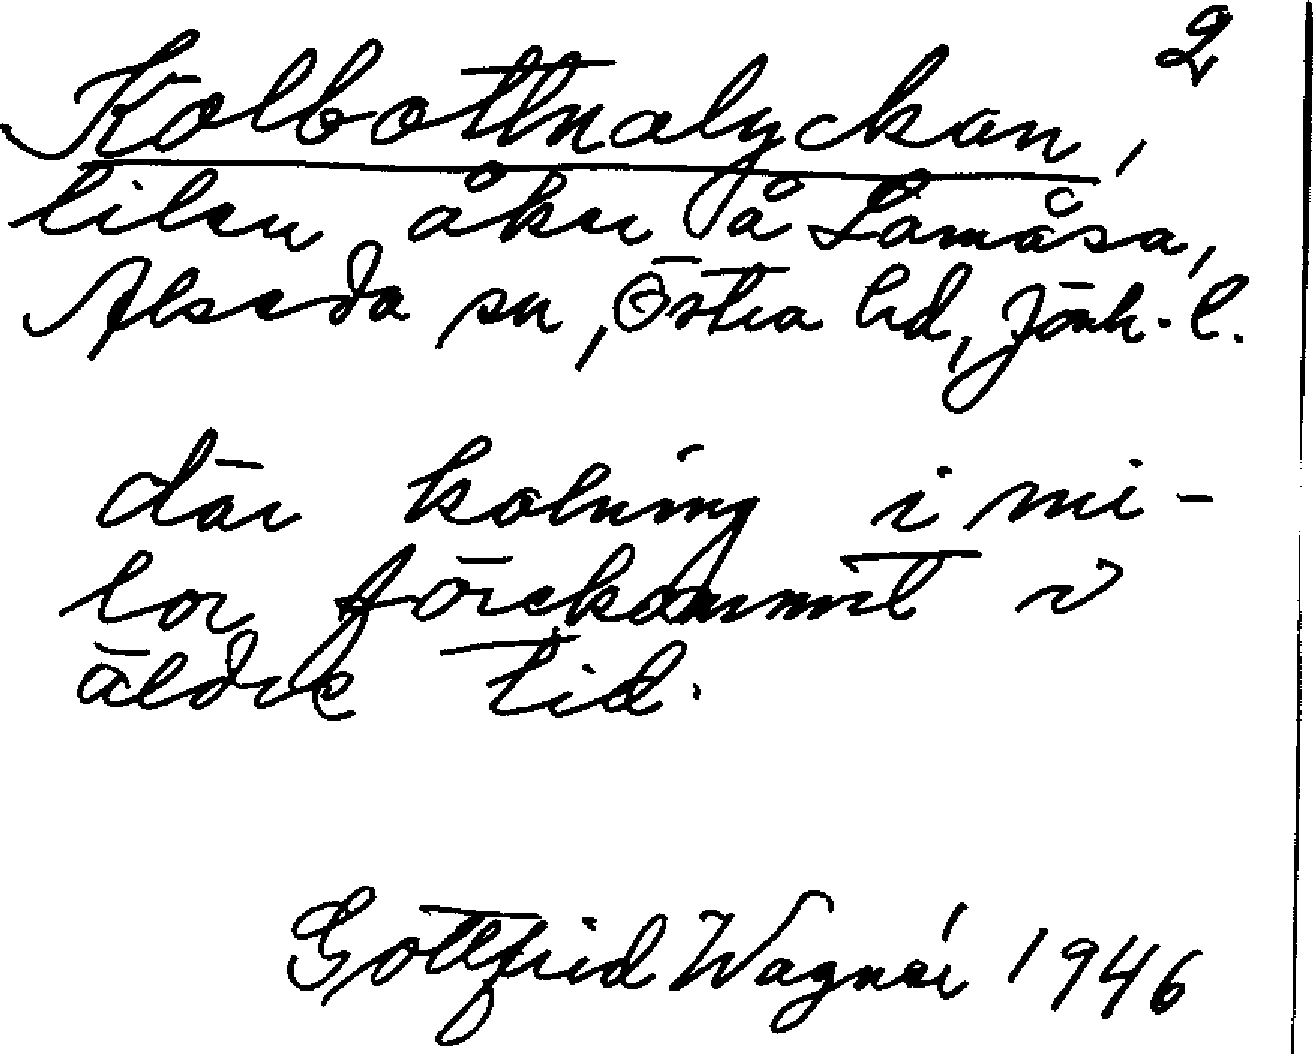 2
Kolbottnalyckan,
liten åker på Lamåsa,
Alseda sn, Östra hd, Jönk. l.
där kolning i mi-
lor förekommit i
äldre tid.
Gottfrid Wagnér 1946